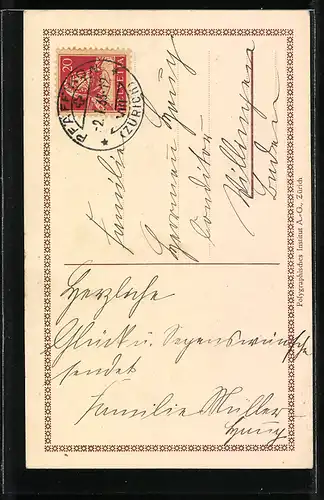 20
HELVETIA
PFÄFFIKON
(ZÜRICH)
Familie
Hermann Haug
Conditor
Villingen
Baden
Polygraphisches Institut A.-G., Zürich
Herzliche
Glück u. Segenswünsche
sendet
Familie Müller
Haug